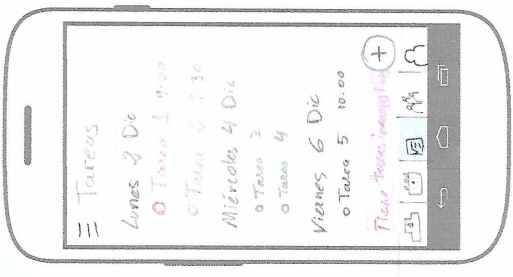 Tareas
Lunes 2 Dic
Tarea 1 9:00
Tarea 2 9:30
Miércoles 4 Dic
Tarea 3
Tarea 4
Viernes 6 Dic
Tarea 5 10:00
Tiene tareas
+